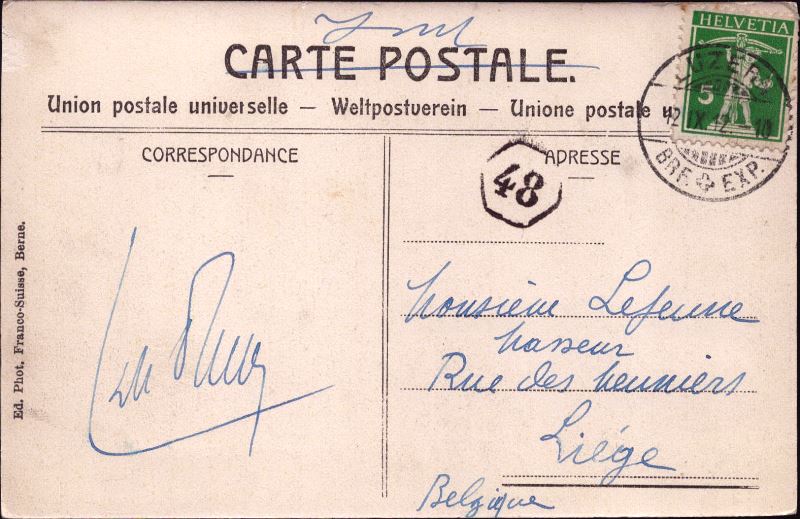 HELVETIA
5
LUZERN
12.IX.12.–10
BRF. EXP.
CARTE POSTALE.
Union postale universelle — Weltpostverein — Unione postale
CORRESPONDANCE
ADRESSE
48
Ed. Phot. Franco-Suisse, Berne.
Monsieur Lejeune
Masseur
Rue des Meuniers
Liége
Belgique